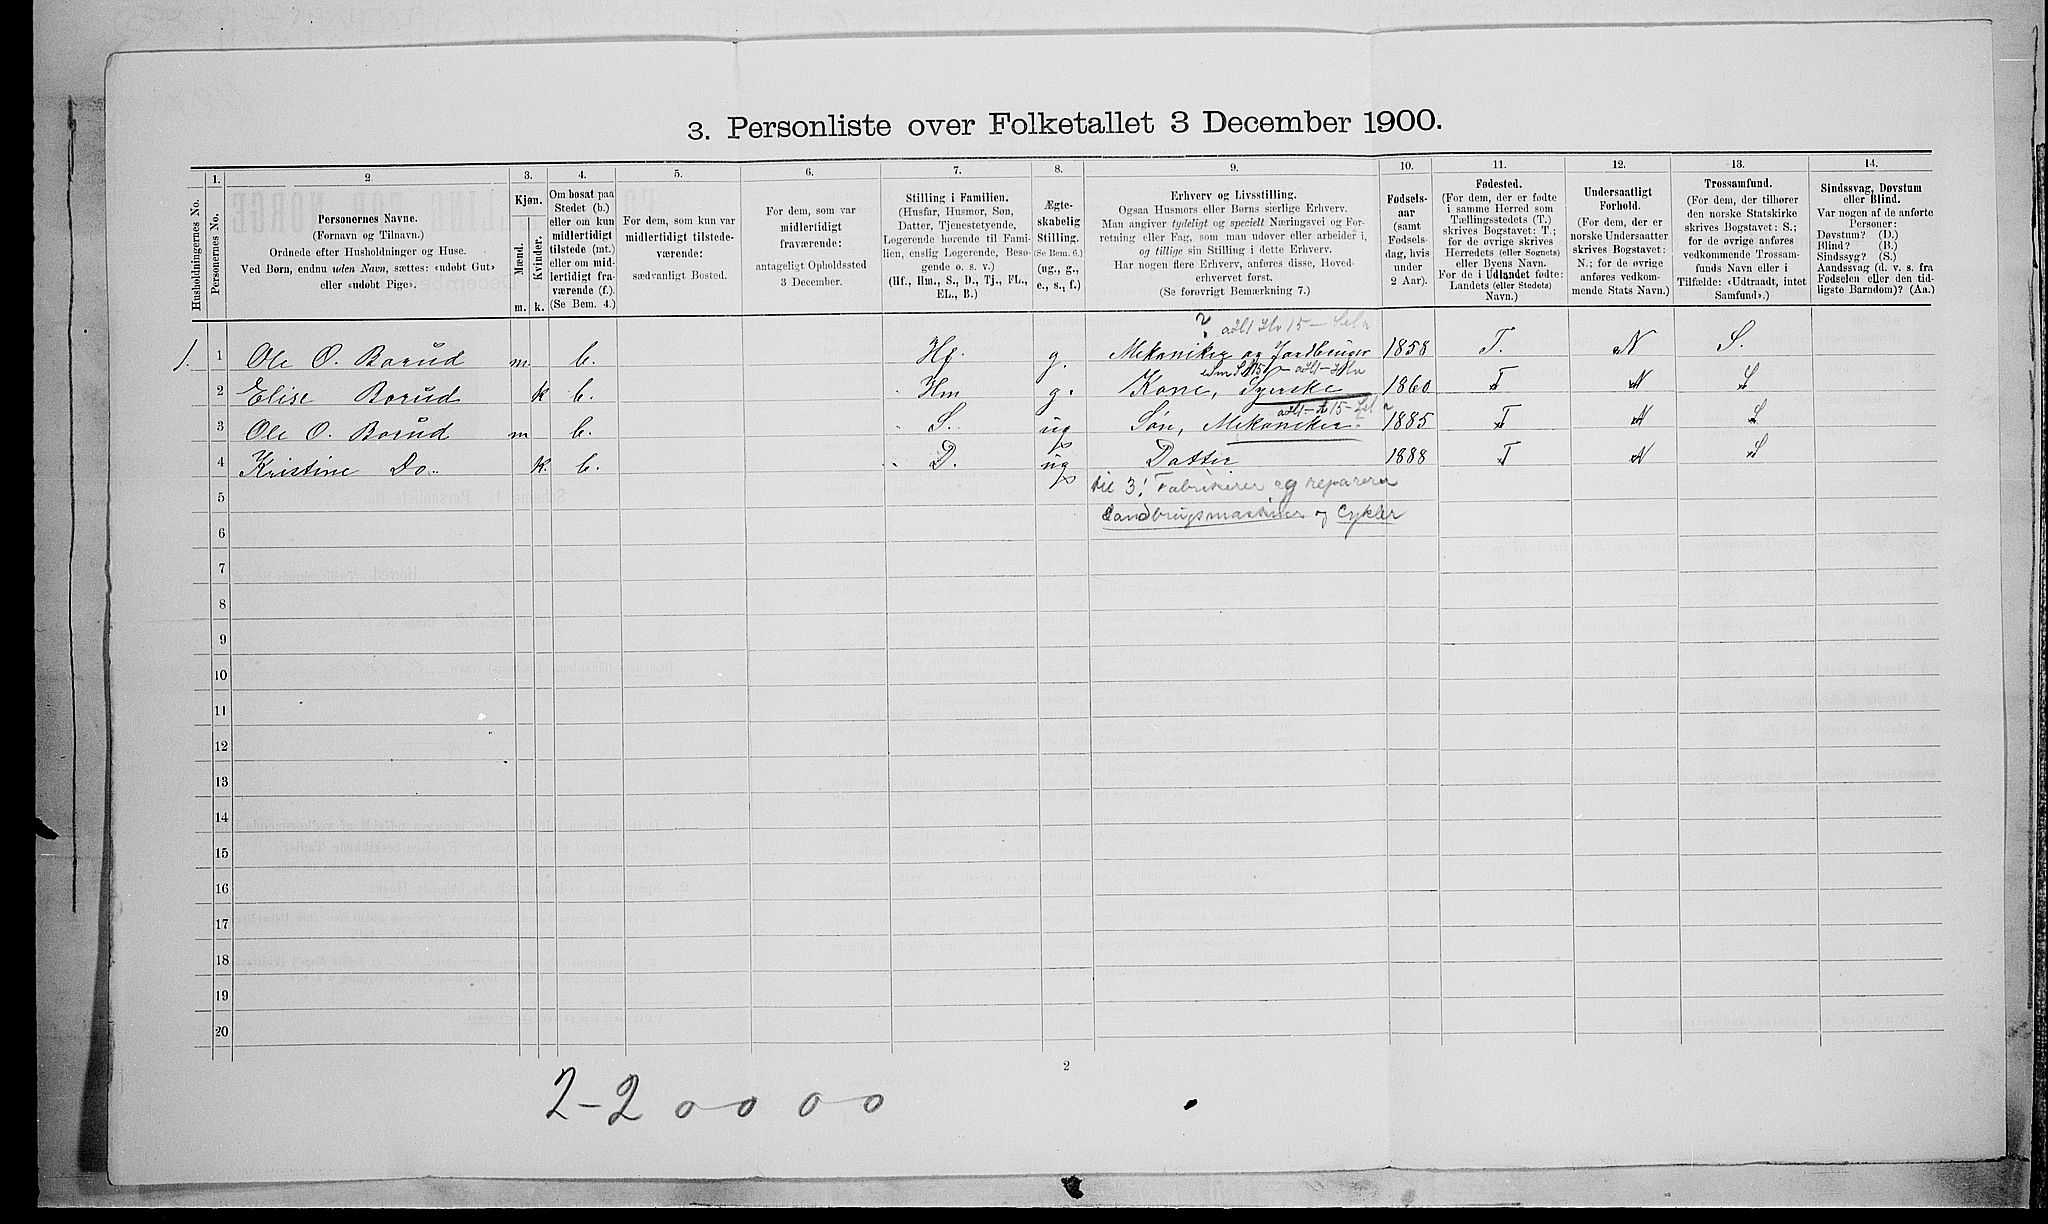 3. Personliste over Folketallet 3 December 1900.
1. 2. 3. 4. 5. 6. 7. 8. 9. 10. 11. 12. 13. 14.
Husholdningernes No.
Personernes No.
Personernes Navne.
(Fornavn og Tilnavn.)
Ordnede efter Husholdninger og Huse.
Ved Børn, endnu uden Navn, sættes: «udøbt Gut»
eller «udøbt Pige».
Kjøn.
Mænd.
Kvinder.
m. k.
Om bosat paa
Stedet (b.)
eller om kun
midlertidigt
tilstede (mt.)
eller om mid-
lertidigt fra-
værende (f.).
(Se Bem. 4.)
For dem, som kun var
midlertidigt tilstede-
værende:
sædvanligt Bosted.
For dem, som var
midlertidigt
fraværende:
antageligt Opholdssted
3 December.
Stilling i Familien.
(Husfar, Husmor, Søn,
Datter, Tjenestetyende,
Logerende hørende til Fami-
lien, enslig Logerende, Besø-
gende o. s. v.)
(Hf., Hm., S., D., Tj., FL.,
EL., B.)
Ægte-
skabelig
Stilling.
(Se Bem. 6.)
(ug., g.,
e., s., f.)
Erhverv og Livsstilling.
Ogsaa Husmors eller Børns særlige Erhverv.
Man angiver tydeligt og specielt Næringsvei og For-
retning eller Fag, som man udøver eller arbeider i,
og tillige sin Stilling i dette Erhverv.
Har nogen flere Erhverv, anføres disse, Hoved-
erhvervet først.
(Se forøvrigt Bemærkning 7.)
Fødsels-
aar
(samt
Fødsels-
dag, hvis
under
2 Aar).
Fødested.
(For dem, der er fødte
i samme Herred som
Tællingsstedets (T.)
skrives Bogstavet: T.;
for de øvrige skrives
Herredets (eller Sognets)
eller Byens Navn.
For de i Udlandet fødte:
Landets (eller Stedets)
Navn.)
Undersaatligt
Forhold.
(For dem, der er
norske Undersaatter
skrives Bogstavet:
N.; for de øvrige
anføres vedkom-
mende Stats Navn.)
Trossamfund.
(For dem, der tilhører
den norske Statskirke
skrives Bogstavet: S.;
for de øvrige anføres
vedkommende Trossam-
funds Navn eller i
Tilfælde: «Udtraadt, intet
Samfund».)
Sindssvag, Døvstum
eller Blind.
Var nogen af de anførte
Personer:
Døvstum? (D.)
Blind? (B.)
Sindssyg? (S.)
Aandssvag (d. v. s. fra
Fødselen eller den tid-
ligste Barndom)? (Aa.)
1. 1 Ole O. Borud m b. Hf. g. Mekaniker og Jordbruger 1858 T. N S.
2 Elise Borud k b. Hm g. Kone, Syerske 1860 T N S
3 Ole O. Borud m b. S. ug Søn, Mekaniker 1885 T N S
4 Kristine Do k. b. D. ug Datter 1888 T N S
5 til 3! Fabrikerer og reparerer
Landbrugsmaskiner og Cykler
6
7
8
9
10
11
12
13
14
15
16
17
18
19
20
2
2-2 0 0 0 0